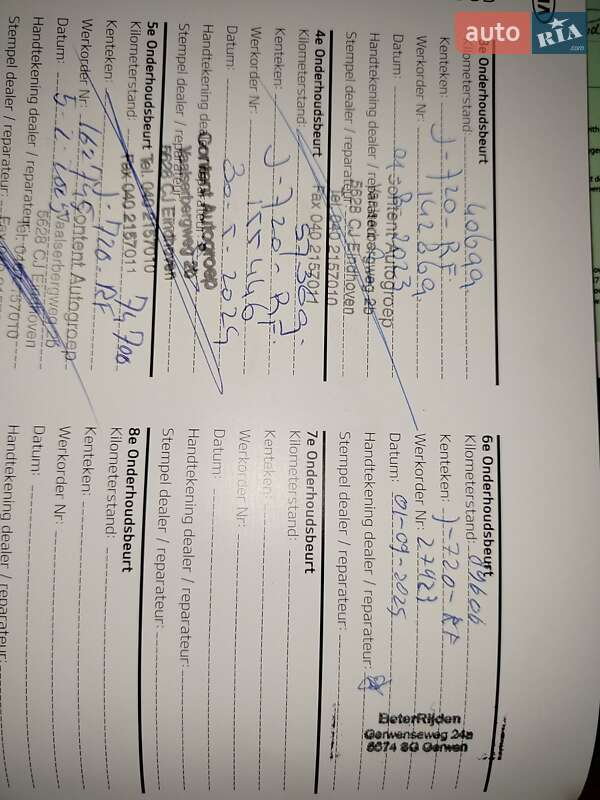 auto RIA .com
KIA
3e Onderhoudsbeurt
Kilometerstand: 40699
Kenteken: J-720-RF
Werkorder Nr: 142869
Datum: 04 8 2023
Handtekening dealer / reparateur:
Stempel dealer / reparateur:
Content Autogroep
Vaalserbergweg 2b
5628 CJ Eindhoven
Tel. 040 2157010
Fax 040 2157011
4e Onderhoudsbeurt
Kilometerstand: 57369
Kenteken: J-720-RF
Werkorder Nr: 155446
Datum: 30-5-2024
Handtekening dealer / reparateur:
Stempel dealer / reparateur:
Content Autogroep
Vaalserbergweg 2b
5628 CJ Eindhoven
Tel. 040 2157010
Fax 040 2157011
5e Onderhoudsbeurt
Kilometerstand: 74700
Kenteken: J-720-RF
Werkorder Nr: 162745
Datum: 5.2.2025
Handtekening dealer / reparateur:
Stempel dealer / reparateur:
Content Autogroep
Vaalserbergweg 2b
5628 CJ Eindhoven
Tel. 040 2157010
6e Onderhoudsbeurt
Kilometerstand: 89606
Kenteken: J-720-RF
Werkorder Nr: 27923
Datum: 01-09-2025
Handtekening dealer / reparateur:
Stempel dealer / reparateur:
BeterRijden
Gerwenseweg 24a
5674 SG Gerwen
7e Onderhoudsbeurt
Kilometerstand:
Kenteken:
Werkorder Nr:
Datum:
Handtekening dealer / reparateur:
Stempel dealer / reparateur:
8e Onderhoudsbeurt
Kilometerstand:
Kenteken:
Werkorder Nr:
Datum:
Handtekening dealer / reparateur: